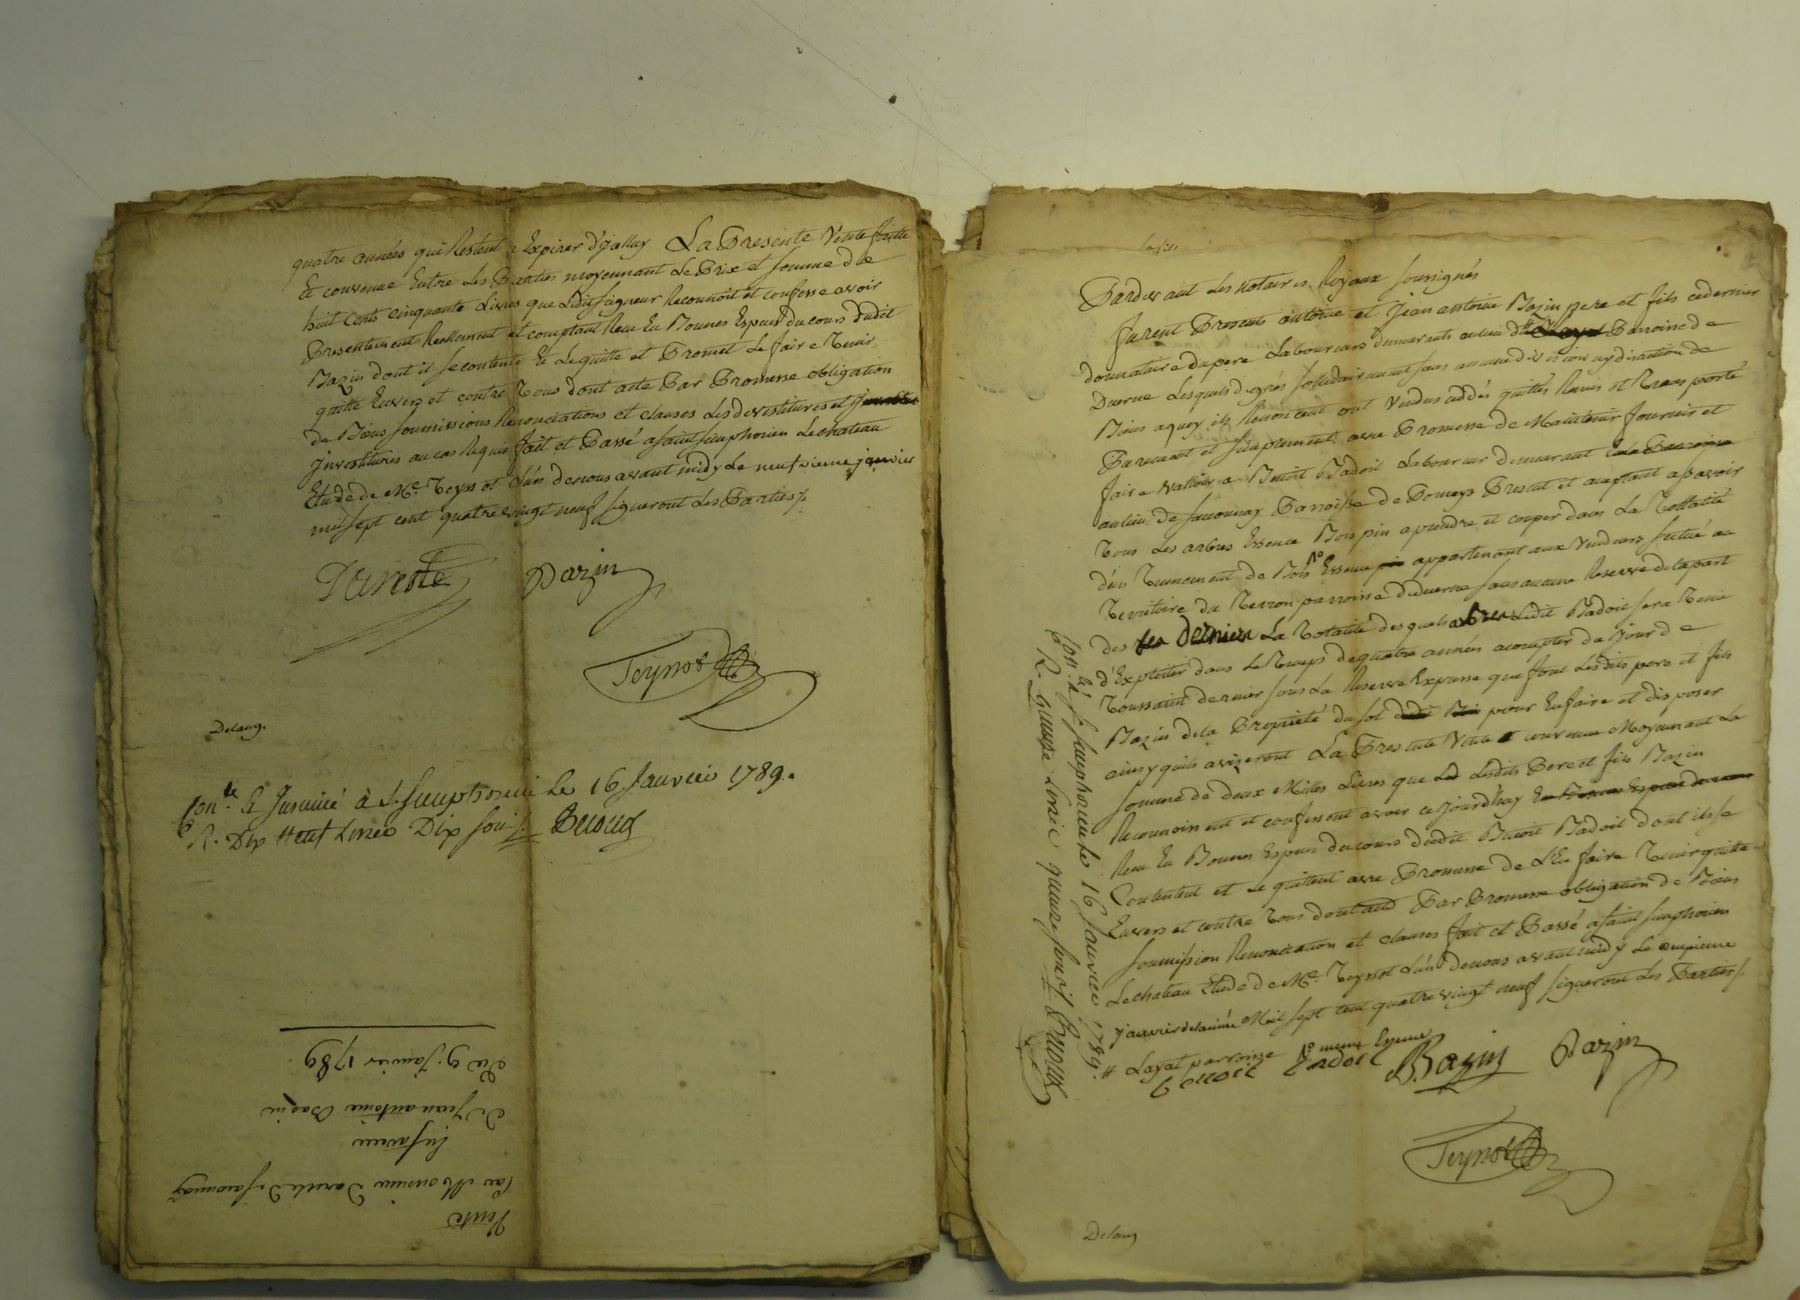 quatre années qui Restent a Expirer d'jcelluy La Presente Vente faitte
Et convenue Entre Les Parties moyennant Le Prix et somme de
huit Cents cinquante Livres que Ledit seigneur Reconnoit et confesse avoir
Presentement Reellement et comptant Reçu En Bonnes Especes du cours dudit
Bazin dont il se contente Et Le quitte et Promet Le faire Tenir
quitte Envers et contre Tous dont acte Par Promesse obligation
de Biens soumissions Renonciations et clauses Les devestitures et
jnvestitures au cas Requis fait et Passé a saint simphorien Le chateau
Etude de Me. Teyssot L'un de nous avant midy Le neufvieme janvier
mil sept cent quatre vingt neuf signeront Les Parties /.
Dareste Bazin
Teyssot
Delaug.
Con.le Et Insinué à S. Simphorien le 16 Janvier 1789.
R. Dix Neuf Livres Dix sous
Vente
Par Monsieur Dareste De saconnay
En faveur
De Jean antoine Bazin
Du 9. janvier 1789
Pardevant Les notaires Royaux soussignés
furent Presents antoine et Jean antoine Bazin pere et fils ce dernier
donnataire du pere Laboureurs demeurants au lieu d # Parroisse de
Duerne Lesquels de grés solidairement sans aucune division ny discution de
Biens a quoy ils Renoncent ont Vendus cédés quittés Remis et Transporté
Purement et simplement avec Promesse de Maintenir fournir et
faire valloir a Benoit Badoil Laboureur demeurant
au lieu de saconnay Parroisse de Pomeys Present et acceptant a savoir
Tous Les arbres Essence Bois pin a prendre et couper dans La Tottalité
d'un Tennement de Bois 1o Essence appartenant aux Vendeurs situé au
Territoire du Terron parroisse de duerne sans aucune Reserve de la part
des Derniers La Totalité desquels arbres Ledit Badoil sera Tenu
d'Exploiter dans Le Temps de quatre années a compter du jour de
Toussaint dernier sous La Reserve Expresse que font Lesdits pere et fils
Bazin de la Propriété du sol pour En faire et disposer
ainsy quils aviseront La Presente Vente convenue Moyennant La
somme de deux Milles Livres que Lesdits Pere et fils Bazin
Reconnoissent et confessent avoir cejourdhuy
Reçu En Bonnes Especes du cours dudit Benoit Badoil dont ils se
Contentent et Le quittent avec Promesse de L'En faire Tenir quitte
Envers et contre Tous dont acte Par Promesse obligation de Biens
soumission Renonciation et clauses fait et Passé a saint simphorien
Le chateau Etude de Me. Teyssot L'un de nous avant midy Le onzieme
janvier de lannée Mil sept cent quatre vingt neuf signeront Les Parties /.
# Layat parroisse 1o meme Essence
benoit badoil Bazin Bazin
Teyssot
Delaug
Con.lé à S. simphorien le 16 Janvier 1789.
R. quinze Livres quinze sous